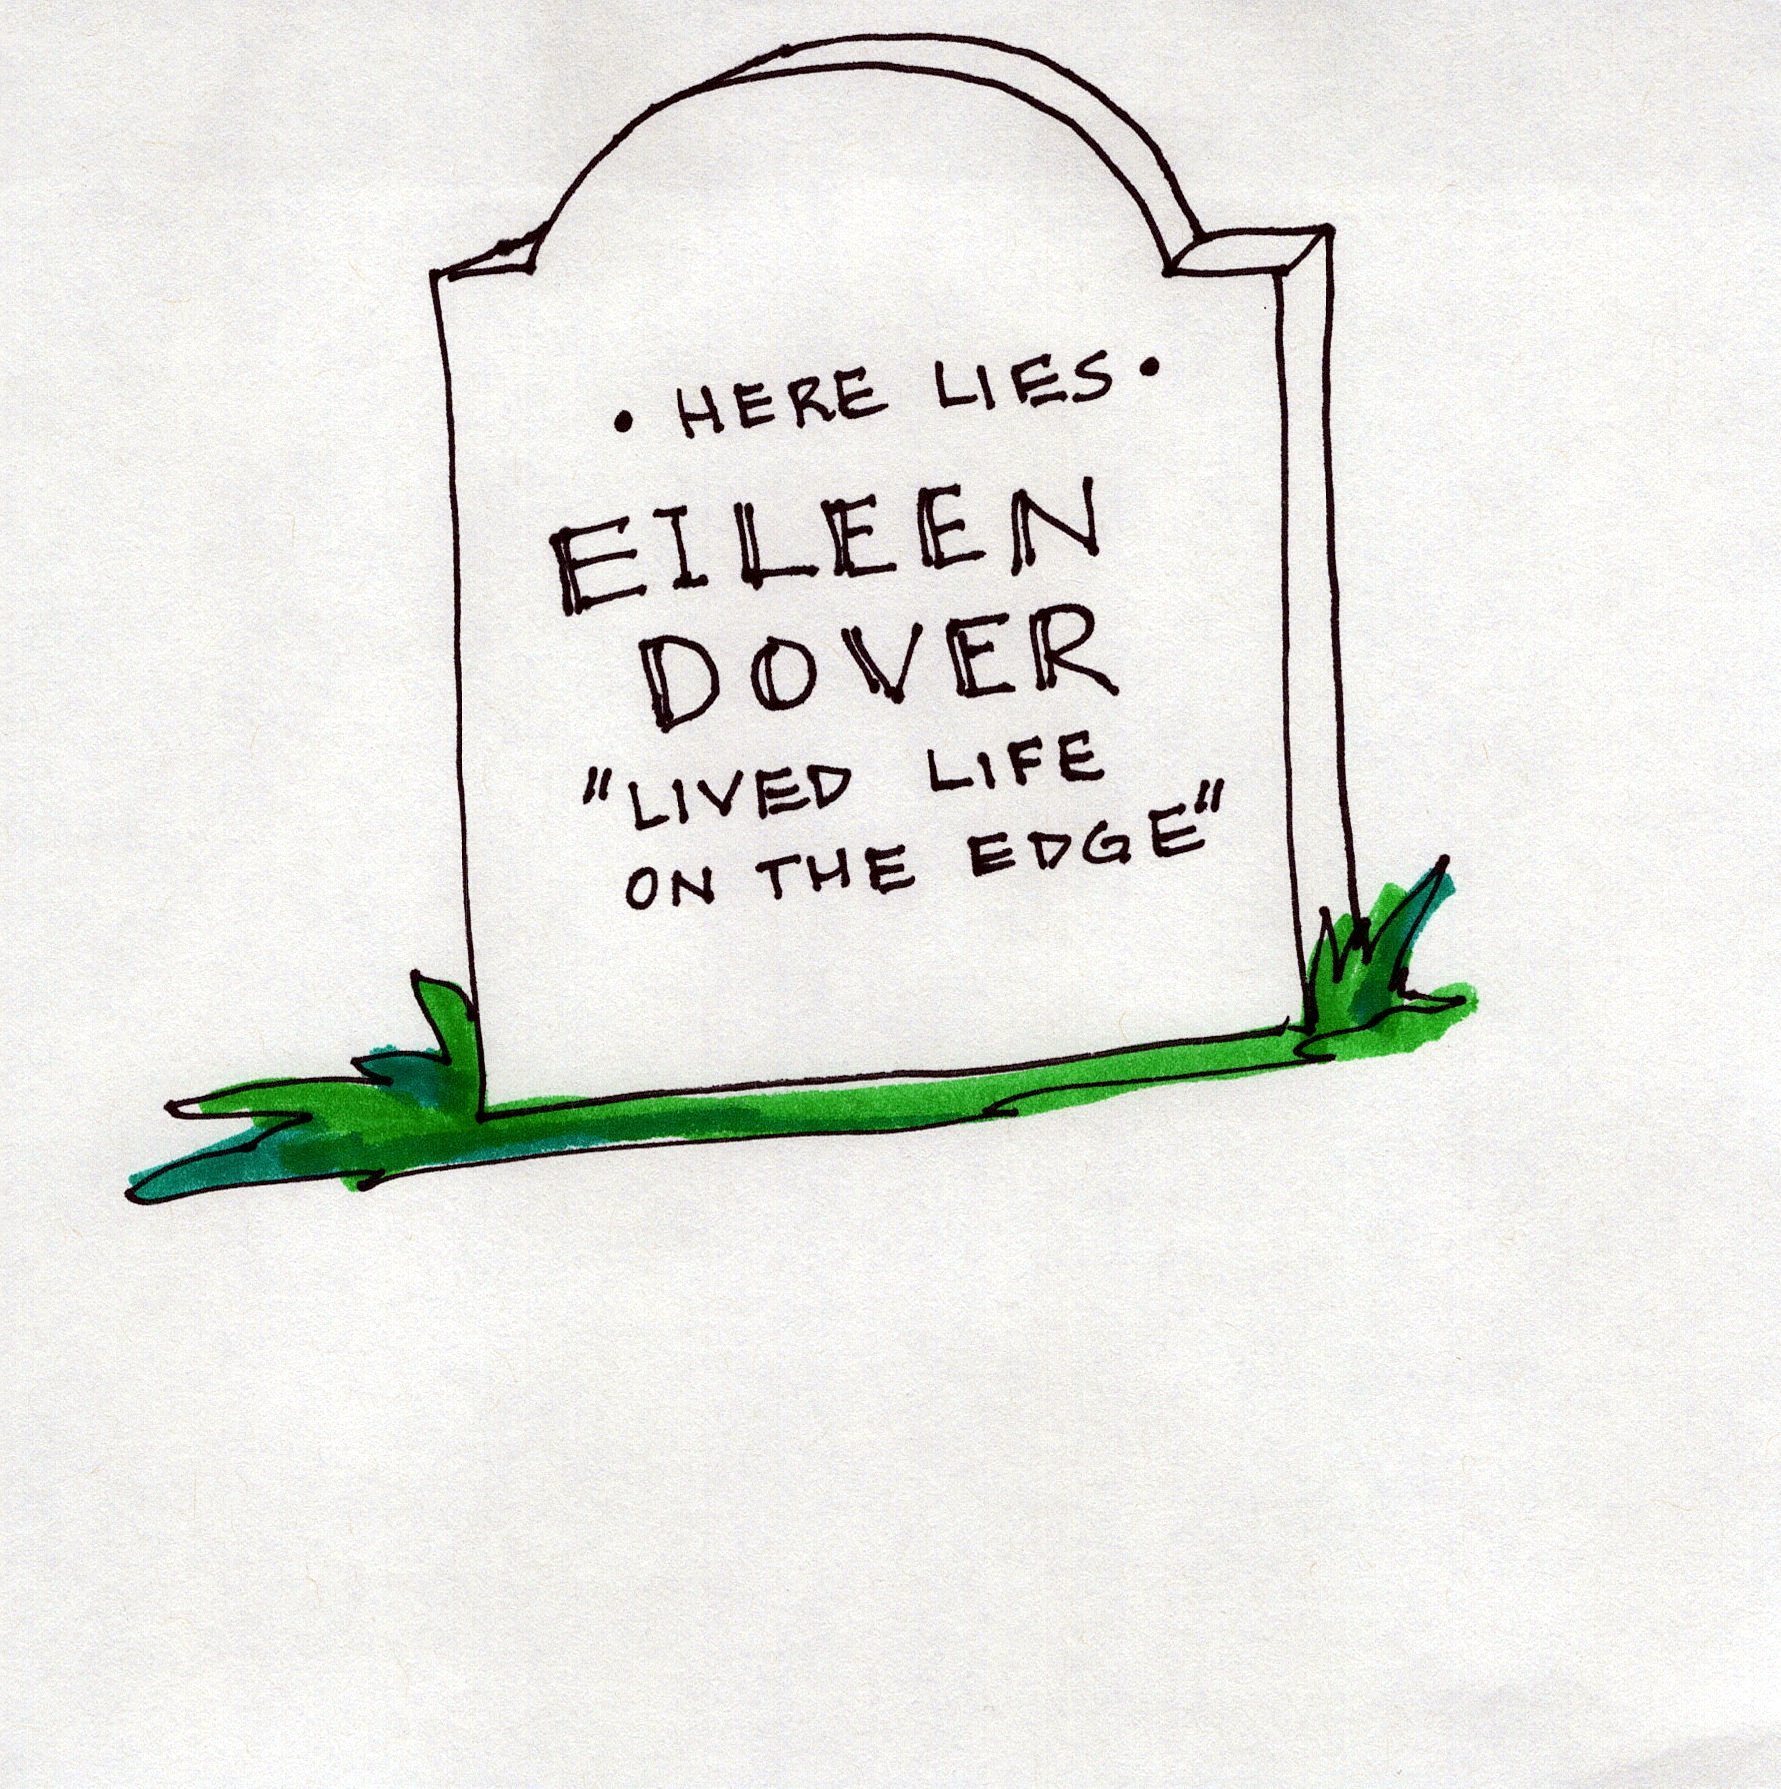 • HERE LIES •
EILEEN
DOVER
"LIVED LIFE
ON THE EDGE"